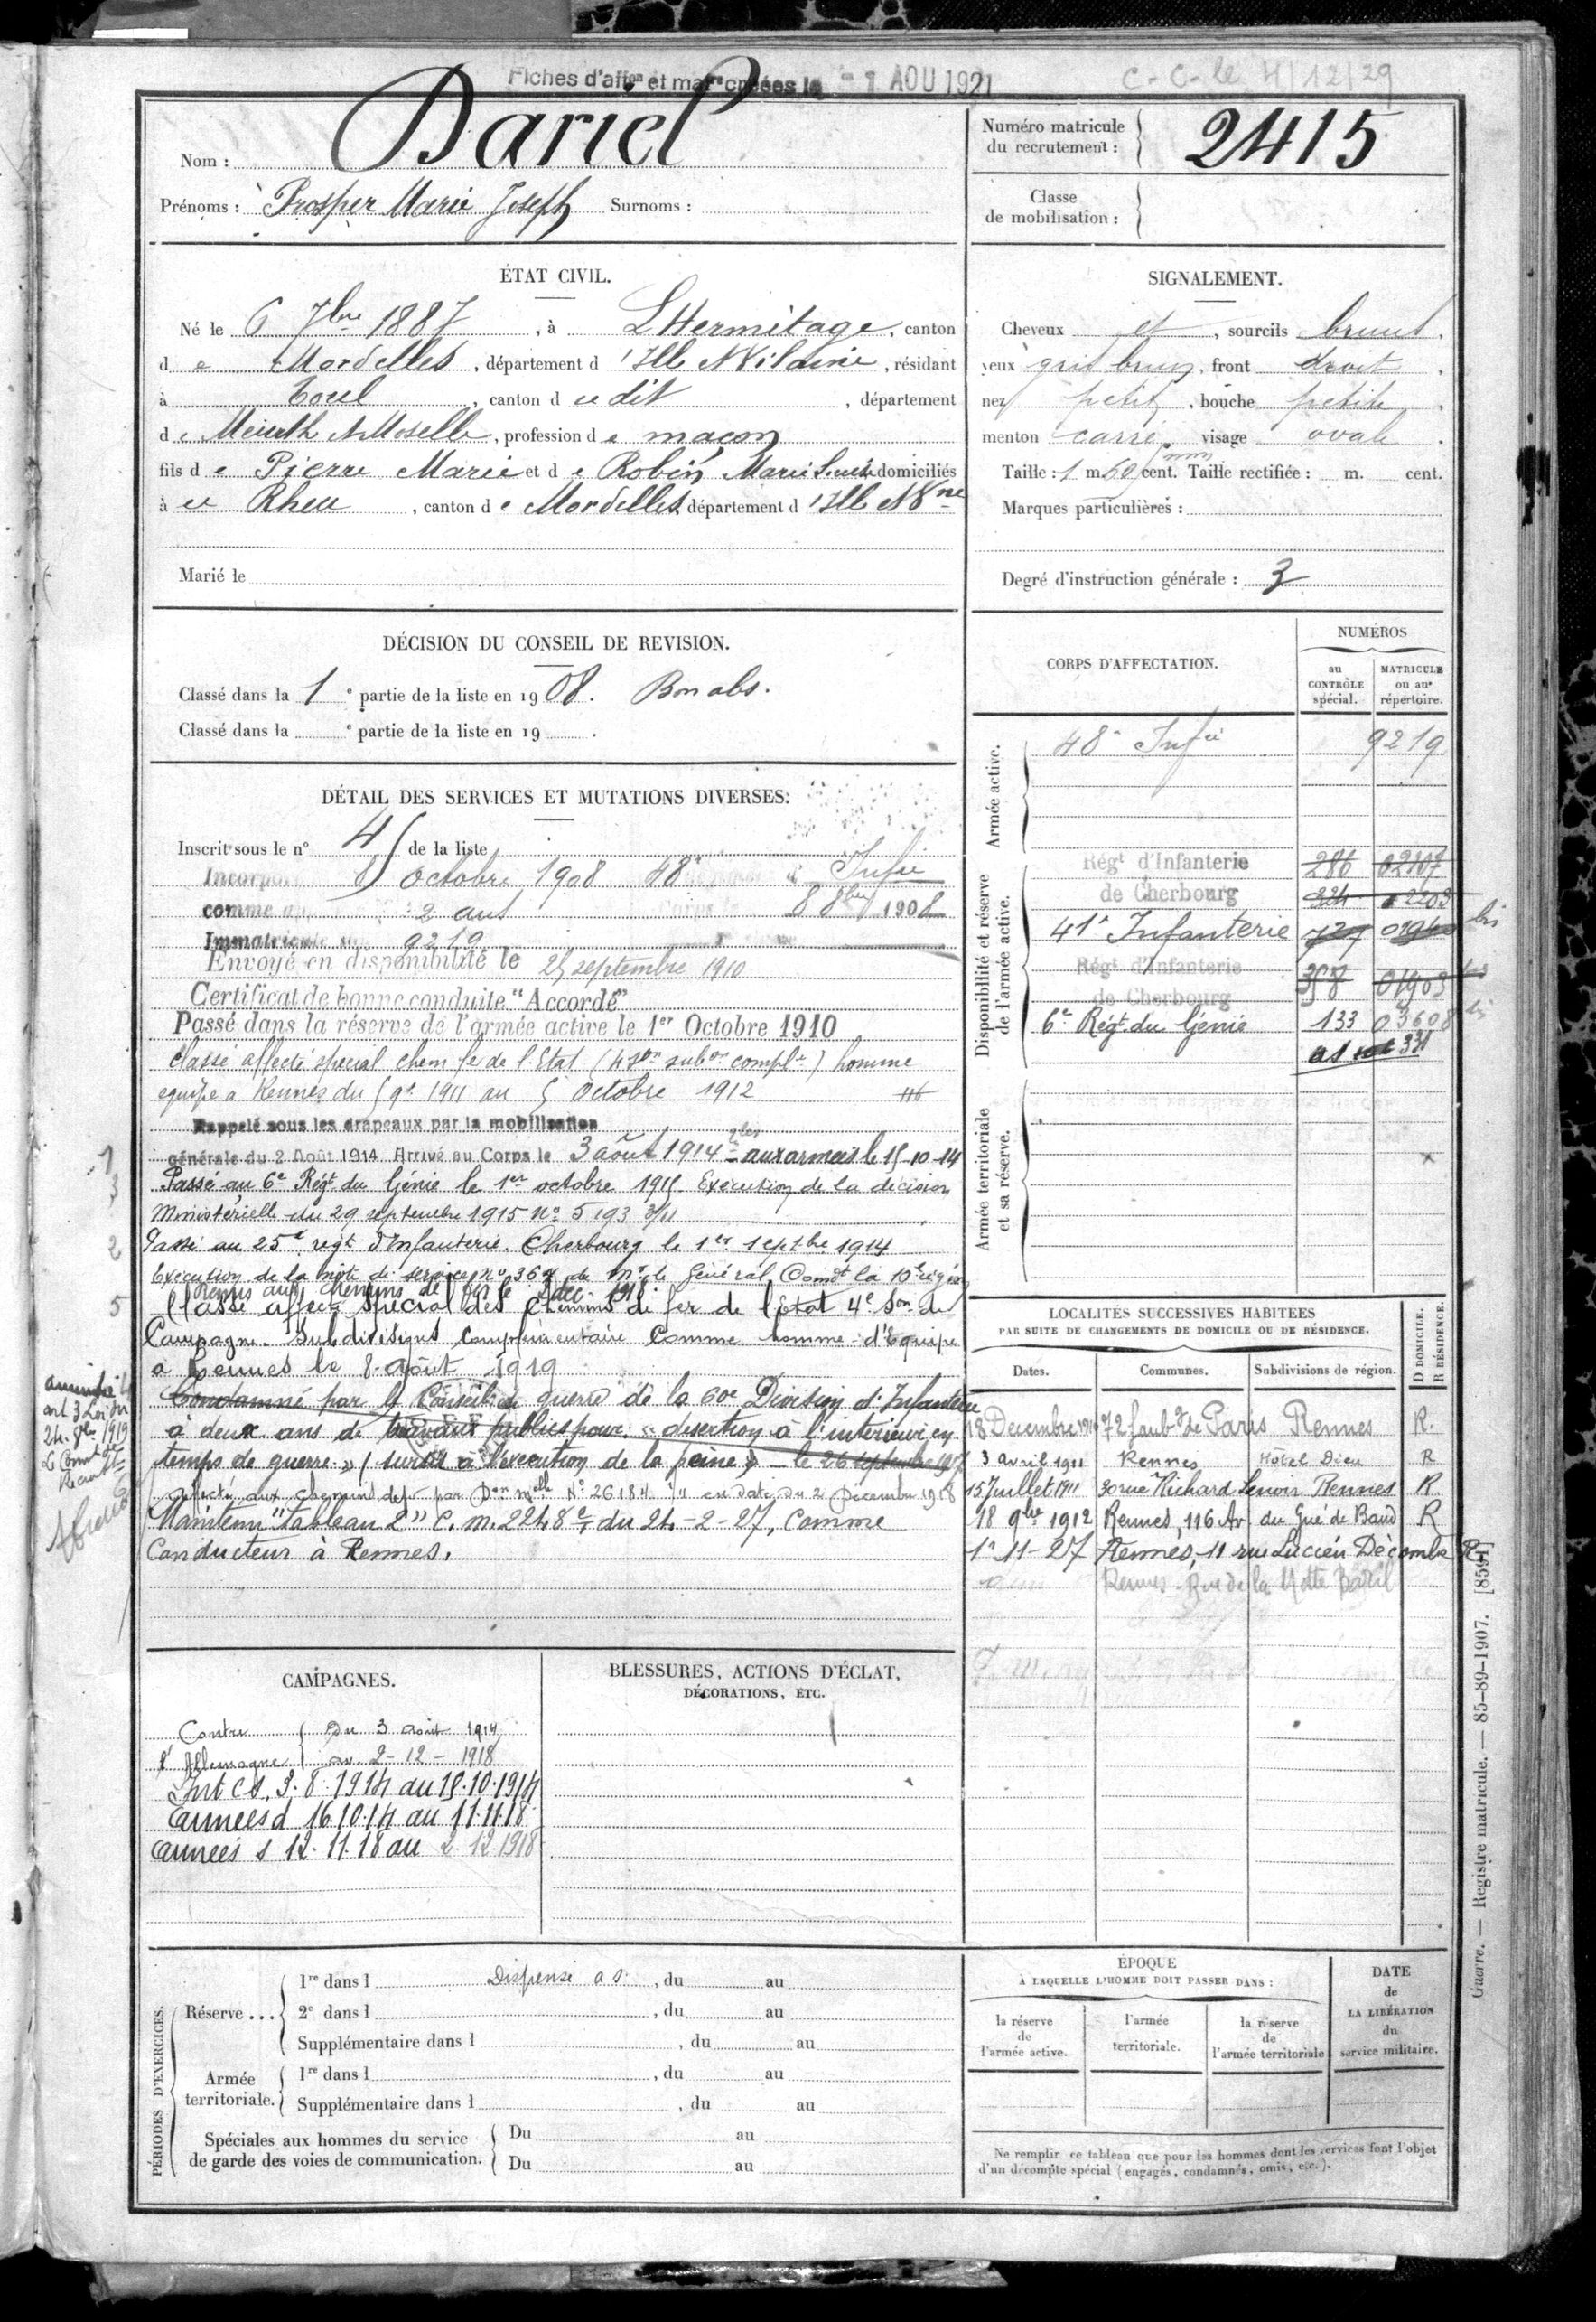 Fiches d'aff<sup>on</sup> et mat<sup>le</sup> créées le 1 AOU 1921
C-C-le 4/12/29
Nom : Dariel
Prénoms : Prosper Marie Joseph Surnoms :
Numéro matricule du recrutement : 2415
Classe de mobilisation :
ÉTAT CIVIL.
Né le 6 7bre 1887, à L'Hermitage, canton
de Mordelles, département d'Ille & Vilaine, résidant
à Toul, canton du dit, département
de Meurth & Moselle, profession de maçon
fils de Pierre Marie et de Robin Marie domiciliés
à Rheu, canton de Mordelles, département d'Ille & Vne
Marié le
SIGNALEMENT.
Cheveux et, sourcils bruns.
yeux gris brun, front droit.
nez petit, bouche petite,
menton carré, visage ovale.
Taille : 1 m. 60 cent. Taille rectifiée : m. cent.
Marques particulières :
Degré d'instruction générale : 3
DÉCISION DU CONSEIL DE REVISION.
Classé dans la 1e partie de la liste en 1908. Bon abs.
Classé dans la e partie de la liste en 19 .
DÉTAIL DES SERVICES ET MUTATIONS DIVERSES:
Inscrit sous le n° 45 de la liste
Incorporé 8 octobre 1908 48e Infie
comme 2 ans Corps 8 8bre 1908
Immatriculé 9219
Envoyé en disponibilité le 25 septembre 1910
Certificat de bonne conduite "Accordé"
Passé dans la réserve de l'armée active le 1er Octobre 1910
Classé affecté spécial chem fe de l'Etat (4 son subon complre) homme
equipe a Rennes du 5 9e 1911 au 5 Octobre 1912
Rappelé sous les drapeaux par la mobilisation
générale du 2 Août 1914 Arrivé au Corps le 3 août 1914 aux armées le 15-10-14
Passé au 6e Régt du Génie le 1er octobre 1915 Exécution de la décision
Ministérielle du 29 septembre 1915 No 5193 3/11
Passé au 25e régt d'Infanterie. Cherbourg le 1er septbre 1914
Exécution de la note de service no 36 de Mr le Général Comdt la 10e région
Remis aux chemins de fer le 2 dec. 1918
Classé affecté spécial des Chemins de fer de l'Etat 4e Son de
Campagne. Subdivisions Complémentaire Comme homme d'Equipe
a Rennes le 8 août 1919
Condamné par le Conseil de guerre de la 60e Division d'Infanterie
à deux ans de travaux publics pour "desertion à l'interieur en
temps de guerre" (sursis à l'execution de la peine) le 26 septembre 1917
affecté aux chemins de fer par Don melle No 26184 en date du 2 Décembre 1918
Maintenu "Tableau C" C.M. 2248 du 24-2-27, Comme
Conducteur à Rennes.
1
3
2
5
amnistié
art 3 Loi du
24. 8bre 1919
Le Commt de
Recrutt
CORPS D'AFFECTATION.
NUMÉROS
au CONTRÔLE spécial.
MATRICULE ou au répertoire.
Armée active.
48e Infie 9219
Disponibilité et réserve de l'armée active.
Régt d'Infanterie 286 02107
de Cherbourg 324 2203
41e Infanterie 727 01940 bis
Régt d'Infanterie
de Cherbourg 358 01903 bis
6e Régt du Génie 133 03608 bis
as 331
Armée territoriale et sa réserve.
LOCALITÉS SUCCESSIVES HABITÉES
PAR SUITE DE CHANGEMENTS DE DOMICILE OU DE RÉSIDENCE.
Dates. Communes. Subdivisions de région. D DOMICILE. R RÉSIDENCE.
18 Decembre 1910 72 faubg de Paris Rennes R.
3 avril 1911 Rennes Hôtel Dieu R
15 Juillet 1911 30 rue Richard Lenoir Rennes R.
18 9bre 1912 Rennes, 116 Av. du Gué de Baud R
1er 11-27 Rennes, 11 rue Lucien Décombe R
Rennes - Rue de la Motte Baril
CAMPAGNES.
Contre l'Allemagne { Du 3 août 1914
au 2-12-1918
Int CS, 3.8.1914 au 15.10.1914
Armées d 16.10.14 au 11.11.18
Armées s 12.11.18 au 2.12.1918
BLESSURES, ACTIONS D'ÉCLAT,
DÉCORATIONS, ETC.
PÉRIODES D'EXERCICES.
Réserve ... 1re dans l Dispensé a s., du au
2e dans l , du au
Supplémentaire dans l , du au
Armée territoriale. 1re dans l , du au
Supplémentaire dans l , du au
Spéciales aux hommes du service
de garde des voies de communication. Du au
Du au
ÉPOQUE
À LAQUELLE L'HOMME DOIT PASSER DANS :
la réserve de l'armée active.
l'armée territoriale.
la réserve de l'armée territoriale
DATE de LA LIBÉRATION du service militaire.
Ne remplir ce tableau que pour les hommes dont les services font l'objet
d'un décompte spécial (engagés, condamnés, omis, etc.).
Guerre. — Registre matricule. — 85-89-1907. [8591]